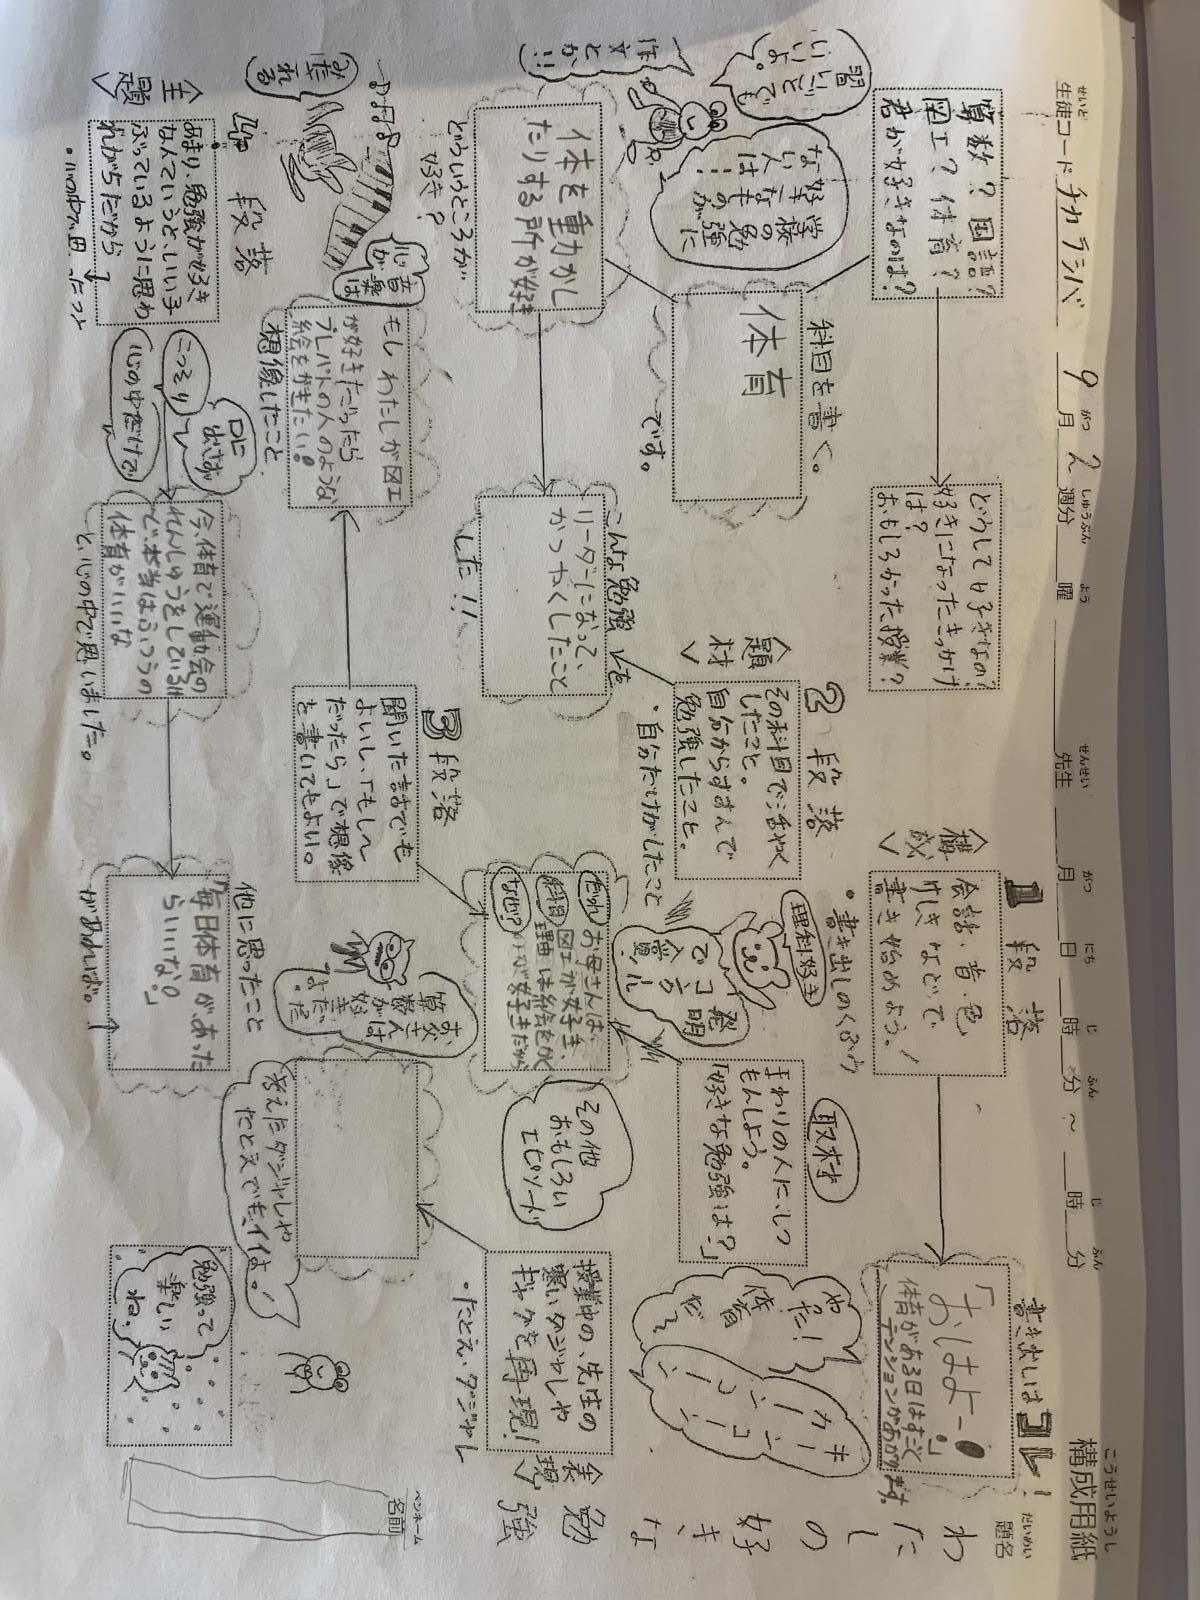 構成用紙
こうせいようし
生徒コード チカラシバ 9月2週分 曜 先生 月 日 時 分 〜 時 分
せいと がつ しゅうぶん よう せんせい がつ にち じ ふん じ ふん
題名
だいめい
わたしの好きな勉強
ペンネーム
名前
書き出しはコレ!
「おはよー!」
体育がある日はすごく
テンションがあがります。
1段落
〈構成〉
会話・音・色
様子などで
書き始めよう。!
・書き出しのくふう
どうして好きなの?
好きになったきっかけ
は?
おもしろかった授業?
算数?国語?
図工?体育?
君が好きなのは?
科目を書く。
体育
です。
学校の勉強に
好きなものが
ない人は…
習いごとでも
いいよ。
作文とか!!
2段落
〈題材〉
その科目で活やく
したこと。
自分からすすんで
勉強したこと。
・自分だけがしたこと
こんな勉強を
リーダーになって、
かつやくしたこと
した!!
体を動かし
たりする所が好き
どういうところが
好き?
取材
まわりの人にしつ
もんしよう。
「好きな勉強は?」
理科好き
発明
で一言
やった!
体育
だ〜
キーンコーンカーンコーン
だれ
科目
なぜ?
お母さんは、
図工が好き、
理由は絵をかく
のが好きだから
その他
おもしろい
エピソード
〈表現〉
授業中の、先生の
寒いダジャレや
ギャグを再現!
・たとえ・ダジャレ
考えたダジャレや
たとえでもイイよ!
3段落
聞いた話でも
よいし、「もし〜
だったら」で想像
を書いてもよい。
お父さんは
算数が好き
だったよ。
もしわたしが図工
が好きだったら
プレバトの人のような
絵をかきたい!
想像したこと
音楽は
心が
みだれる
4段落
〈主題〉
あまり、勉強が好き
なんていうと、いい子
ぶっているように思わ
れがちだから
・心の中で思ったこと
口に
出さず
こっそり
心の中だけで
今、体育で運動会の
れんしゅうをしているの
で、本当はふつうの
体育がいいな
と、心の中で思いました。
他に思ったこと
「毎日体育があった
らいいな。」
があれば。
勉強って
楽しい
ね。